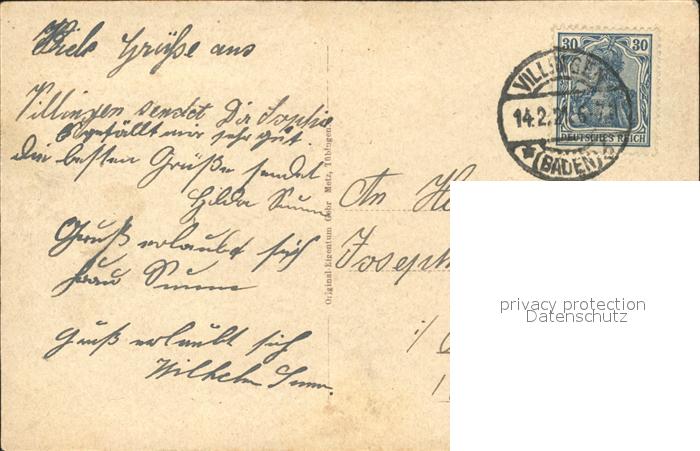 Viele Grüße aus
Villingen sendet Dir Sophie
Es gefällt mir sehr gut.
die besten Grüße sendet
Hilda
Gruß erlaubt sich
Frau
Gruß erlaubt sich
Wilhelm
Original-Eigentum Gebr Metz, Tübingen
30 30
DEUTSCHES REICH
VILLINGEN
14.2.2
(BADEN) 2
An
Joseph
privacy protection
Datenschutz